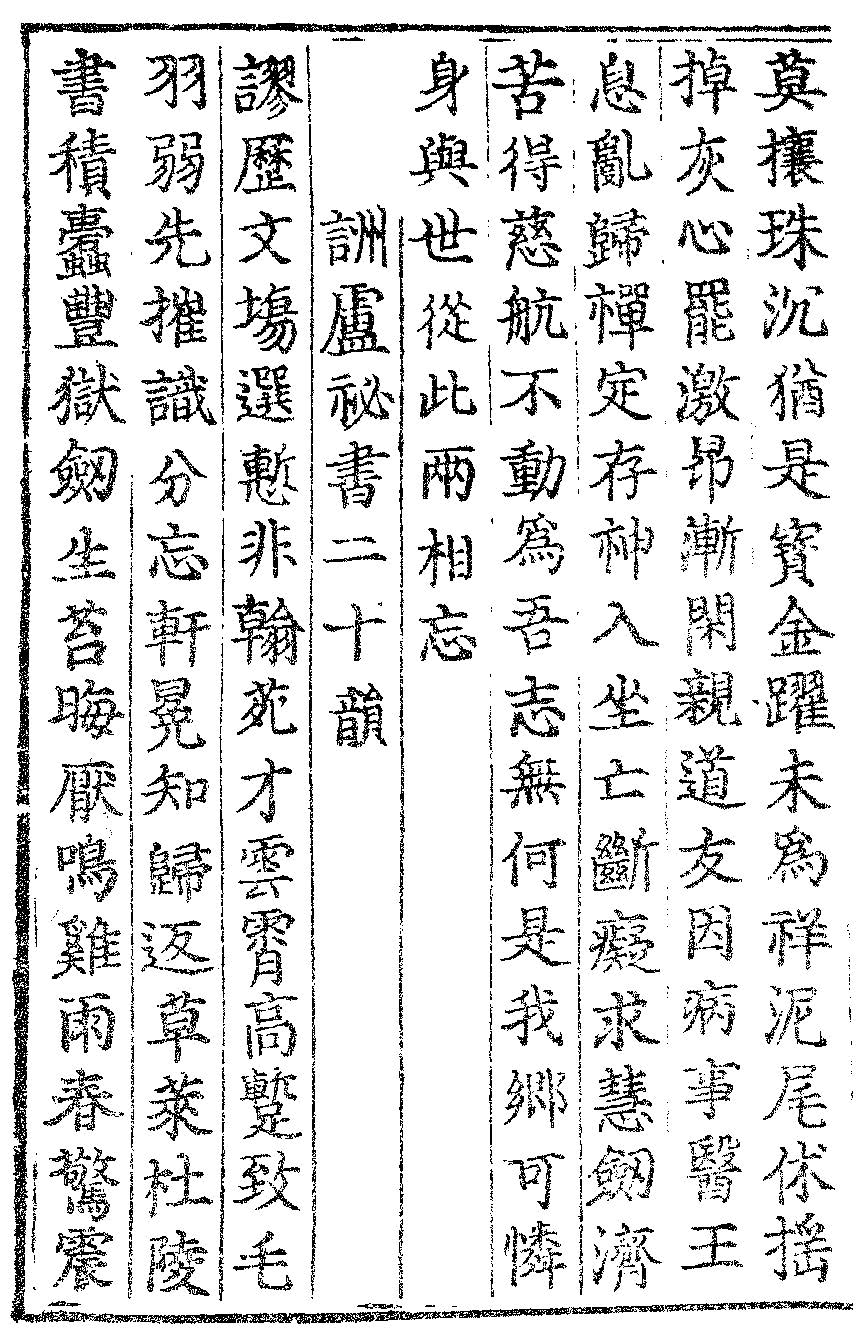 莫攘珠沉猶是寶金躍未爲祥泥尾休搖
掉灰心罷激昂漸閑親道友因病事醫王
息亂歸禪定存神入坐亡斷癡求慧劒濟
苦得慈航不動爲吾志無何是我鄉可憐
身與世從此兩相忘
詶盧祕書二十韻
謬歷文塲選慙非翰苑才雲霄高蹔致毛
羽弱先摧識分忘軒冕知歸返草萊杜陵
書積蠹豐獄劒生苔晦厭鳴雞雨春驚震